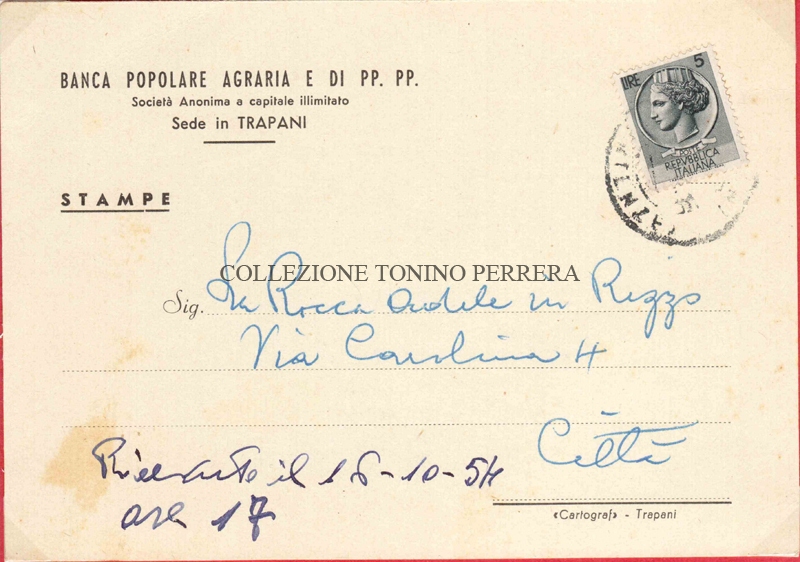 BANCA POPOLARE AGRARIA E DI PP. PP.
Società Anonima a capitale illimitato
Sede in TRAPANI
LIRE 5
POSTE
REPVBBLICA
ITALIANA
STAMPE
COLLEZIONE TONINO PERRERA
Sig. La Rocca Adele in Rizzo
Via Carolina 4
Città
Ricevuto il 16-10-54
ore 17
«Cartograf» - Trapani